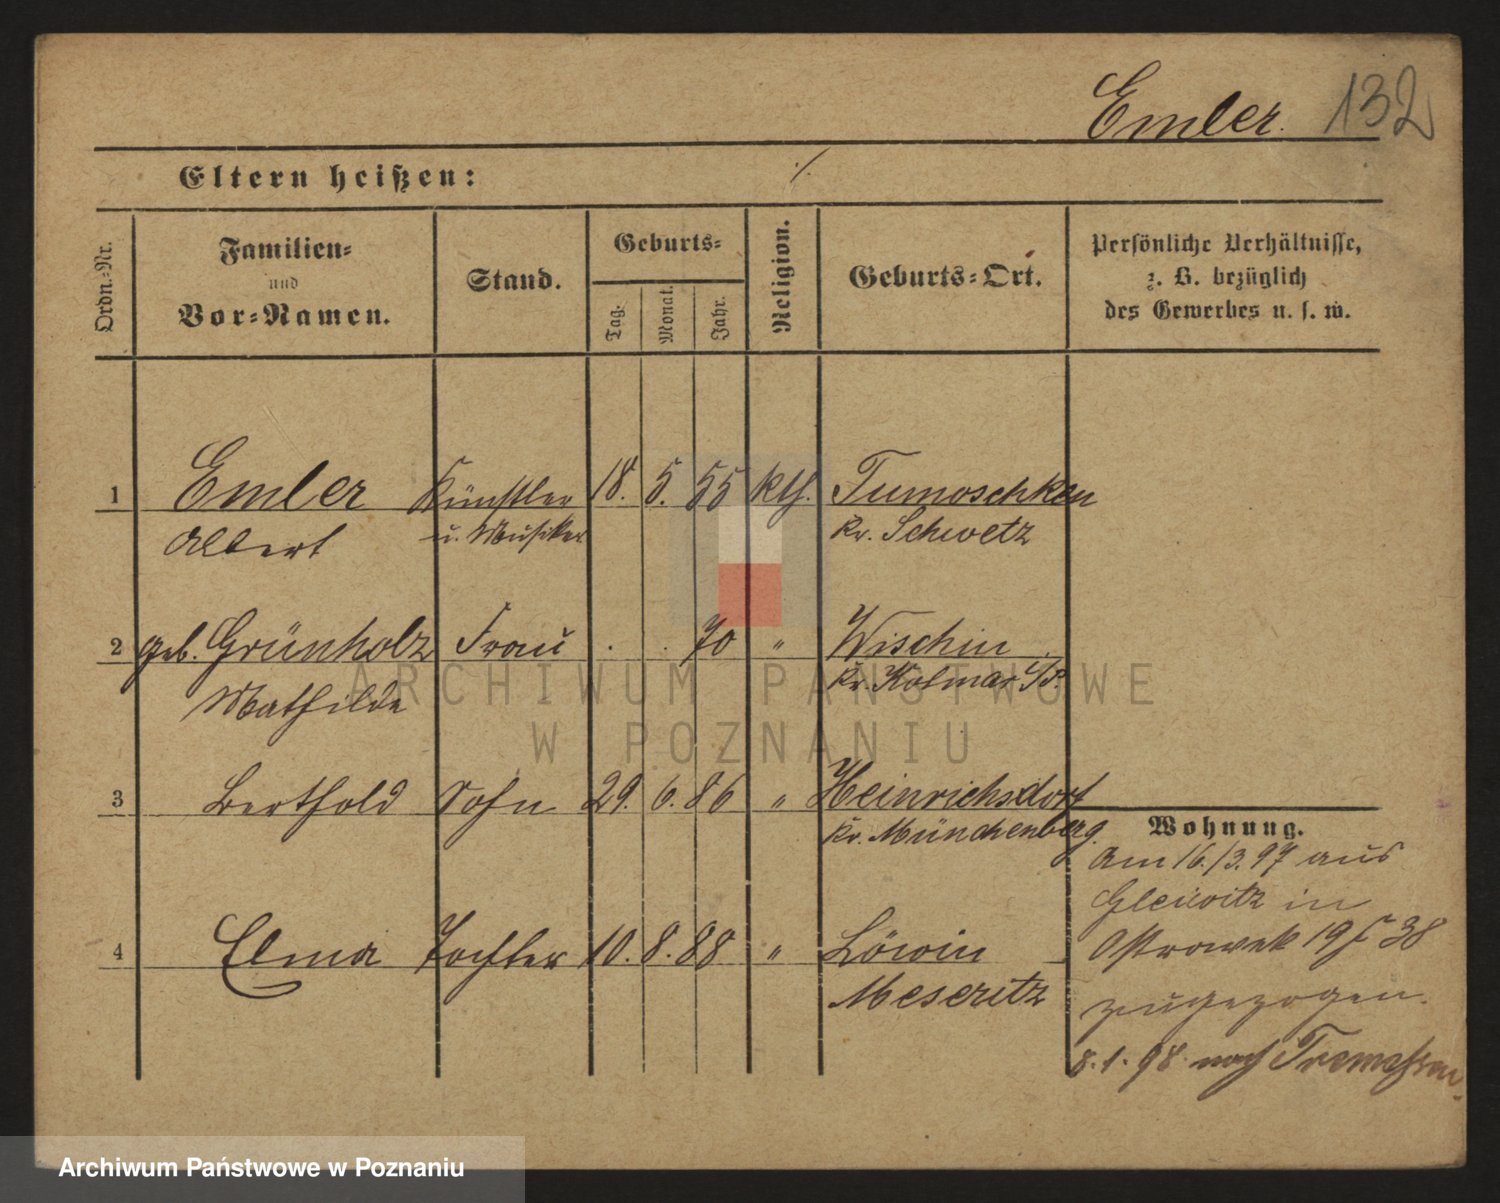 Emler. 132
Eltern heißen: ./.
Ordn.-Nr.
Familien-
und
Vor-Namen.
Stand.
Geburts-
Tag.
Monat.
Jahr.
Religion.
Geburts-Ort.
Persönliche Verhältnisse,
z. B. bezüglich
des Gewerbes u. s. w.
1 Emler Künstler 18. 5. 55 kth. Tumoschken
Albert u. Musiker Kr. Schwetz
2 geb. Grünholz Frau . . 70 " Wischin
Mathilde Kr. Kolmar i/P.
3 Berthold Sohn 29. 6. 86 " Heinrichsdorf
Kr. Münchenberg.
4 Elma Tochter 10. 8. 88 " Löwin
Meseritz
Wohnung.
Am 16./3. 97 aus
Gleiwitz in
Ostrowek 19 38
zugezogen.
8. 1. 98. nach Tremessen.
ARCHIWUM PAŃSTWOWE
W POZNANIU
Archiwum Państwowe w Poznaniu